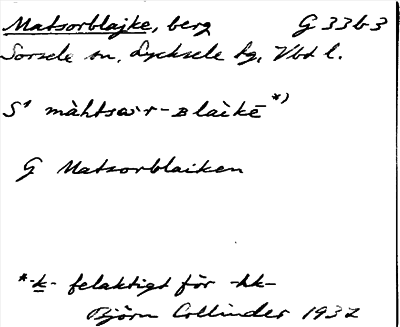 Matsorblajke, berg G 33b3
Sorsele sn, Lycksele lg, Vbt l.
S¹ màhtsɷr-Blàikē *)
G Matsorblaiken
*-k- felaktigt för -hk-
Björn Collinder 1932